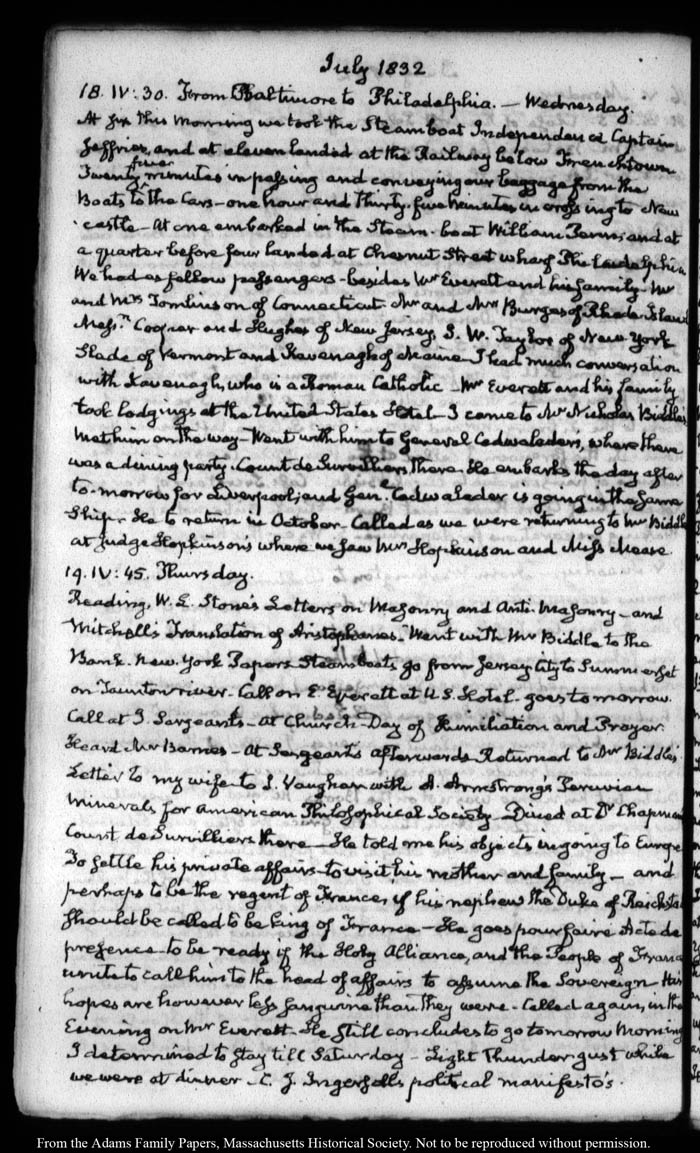 July 1832
18. IV: 30. From Baltimore to Philadelphia. — Wednesday.
At six this morning we took the Steam boat Independence Captain
Jeffries, and at eleven landed at the Railway below Frenchtown
Twenty five minutes in passing and conveying our baggage from the
Boats to the Cars - one hour and thirty-five minutes in crossing to New
castle - At one embarked in the Steam-boat William Penn; and at
a quarter before four landed at Chesnut Street wharf Philadelphia
We had as fellow passengers - besides Mr Everett and his family - Mr
and Mrs Tomlinson of Connecticut. Mr and Mrs Burges of Rhode-Island
Messrs Cooper and Hughes of New Jersey, J. W. Taylor of New York
Slade of Vermont and Kavenagh of Maine - I had much conversation
with Kavenagh, who is a Roman Catholic - Mr Everett and his family
took lodgings at the United States Hotel - I came to Mr Nicholas Biddles
Met him on the way - Went with him to General Cadwalader's, where there
was a dining party. Count de Survilliers there. He embarks the day after
to-morrow for Liverpool; and Genl Cadwalader is going in the same
Ship - He to return in October - Called as we were returning to Mr Biddle
at Judge Hopkinson's where we saw Mrs Hopkinson and Miss Mease
19. IV: 45. Thursday.
Reading, W. L. Stone's Letters on Masonry and Anti-Masonry - and
Mitchell's Translation of Aristophanes. Went with Mr Biddle to the
Bank. New-York Papers Steam boats go from Jersey City to Summerset
on Taunton river - Call on E Everett at U S Hotel - goes to morrow.
Call at J. Sargeants - At Church - Day of Humiliation and Prayer
Heard Mr Barnes - At Sargeants afterwards Returned to Mr Biddles
Letter to my wife - to J. Vaughan with A. Armstrong's Peruvian
Minerals for American Philosophical Society - Dined at Dr Chapman
Count de Survilliers there - He told me his objects in going to Europe
To settle his private affairs - to visit his mother and family - and
perhaps to be the regent of France, if his nephew the Duke of Reichsta
should be called to be king of France - He goes pour faire Acte de
presence - to be ready if the Holy Alliance, and the People of France
unite to call him to the head of affairs to assume the Sovereign - His
hopes are however less sanguine than they were - Called again, in the
Evening on Mr Everett - He still concludes to go tomorrow Morning
I determined to stay till Saturday - Light Thunder-gust while
we were at dinner - C. J. Ingersoll's political manifesto's.
From the Adams Family Papers, Massachusetts Historical Society. Not to be reproduced without permission.